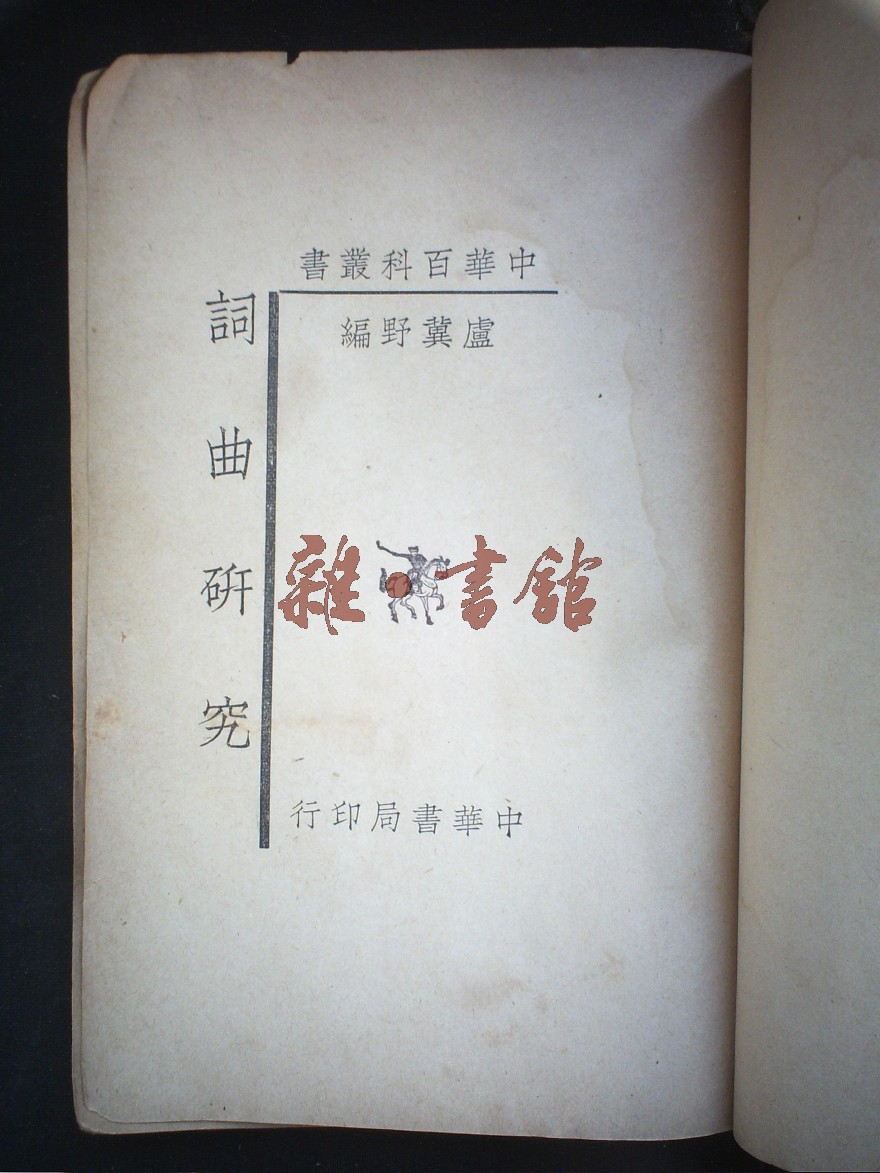 中華百科叢書
盧冀野編
詞曲研究
雜書館
中華書局印行